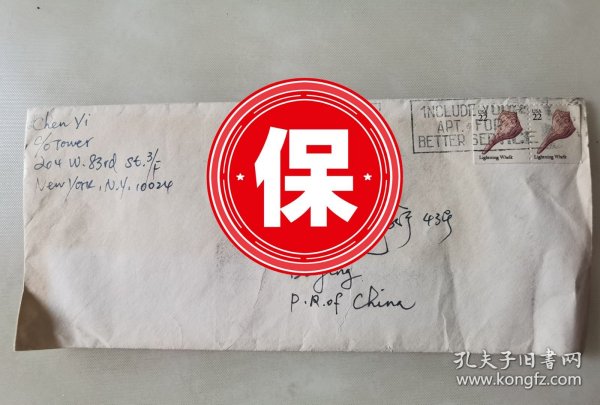 Chen Yi
c/o Tower
204 W. 83rd St. 3/F
New York, N.Y. 10024
INCLUDE YOUR
APT. FOR
BETTER SERVICE
22
USA 22
Lightning Whelk
Lightning Whelk
保
43号
Beijing
P.R. of China
孔夫子旧书网
www.kongfz.com